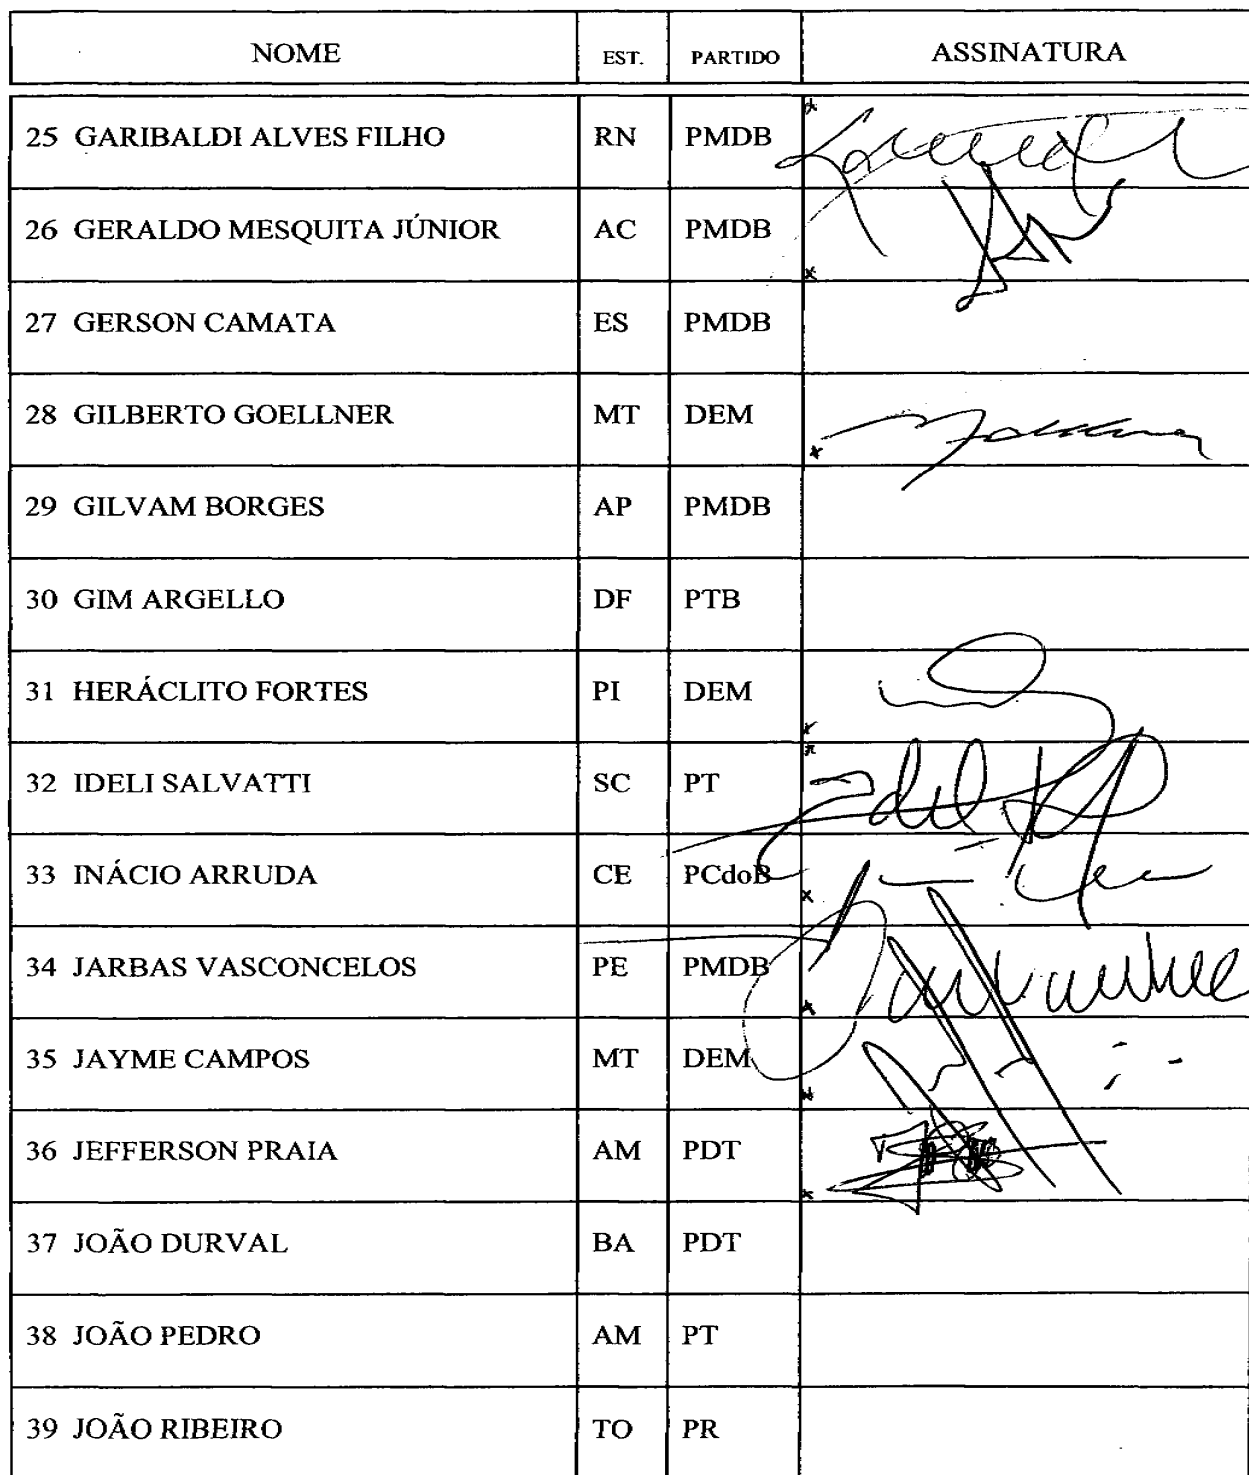 NOME EST. PARTIDO ASSINATURA
25 GARIBALDI ALVES FILHO RN PMDB
26 GERALDO MESQUITA JÚNIOR AC PMDB
27 GERSON CAMATA ES PMDB
28 GILBERTO GOELLNER MT DEM
29 GILVAM BORGES AP PMDB
30 GIM ARGELLO DF PTB
31 HERÁCLITO FORTES PI DEM
32 IDELI SALVATTI SC PT
33 INÁCIO ARRUDA CE PCdoB
34 JARBAS VASCONCELOS PE PMDB
35 JAYME CAMPOS MT DEM
36 JEFFERSON PRAIA AM PDT
37 JOÃO DURVAL BA PDT
38 JOÃO PEDRO AM PT
39 JOÃO RIBEIRO TO PR